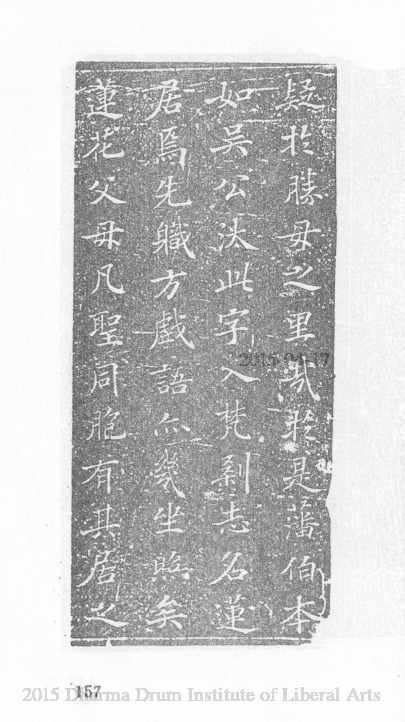 疑扵勝母之里哉扵是潘伯本
如吳公决此字入梵剎志名蓮
居焉先軄方戲語亦幾坐照矣
蓮花父母凡聖同胞有其居之
2015-04-17
157
2015 Dharma Drum Institute of Liberal Arts